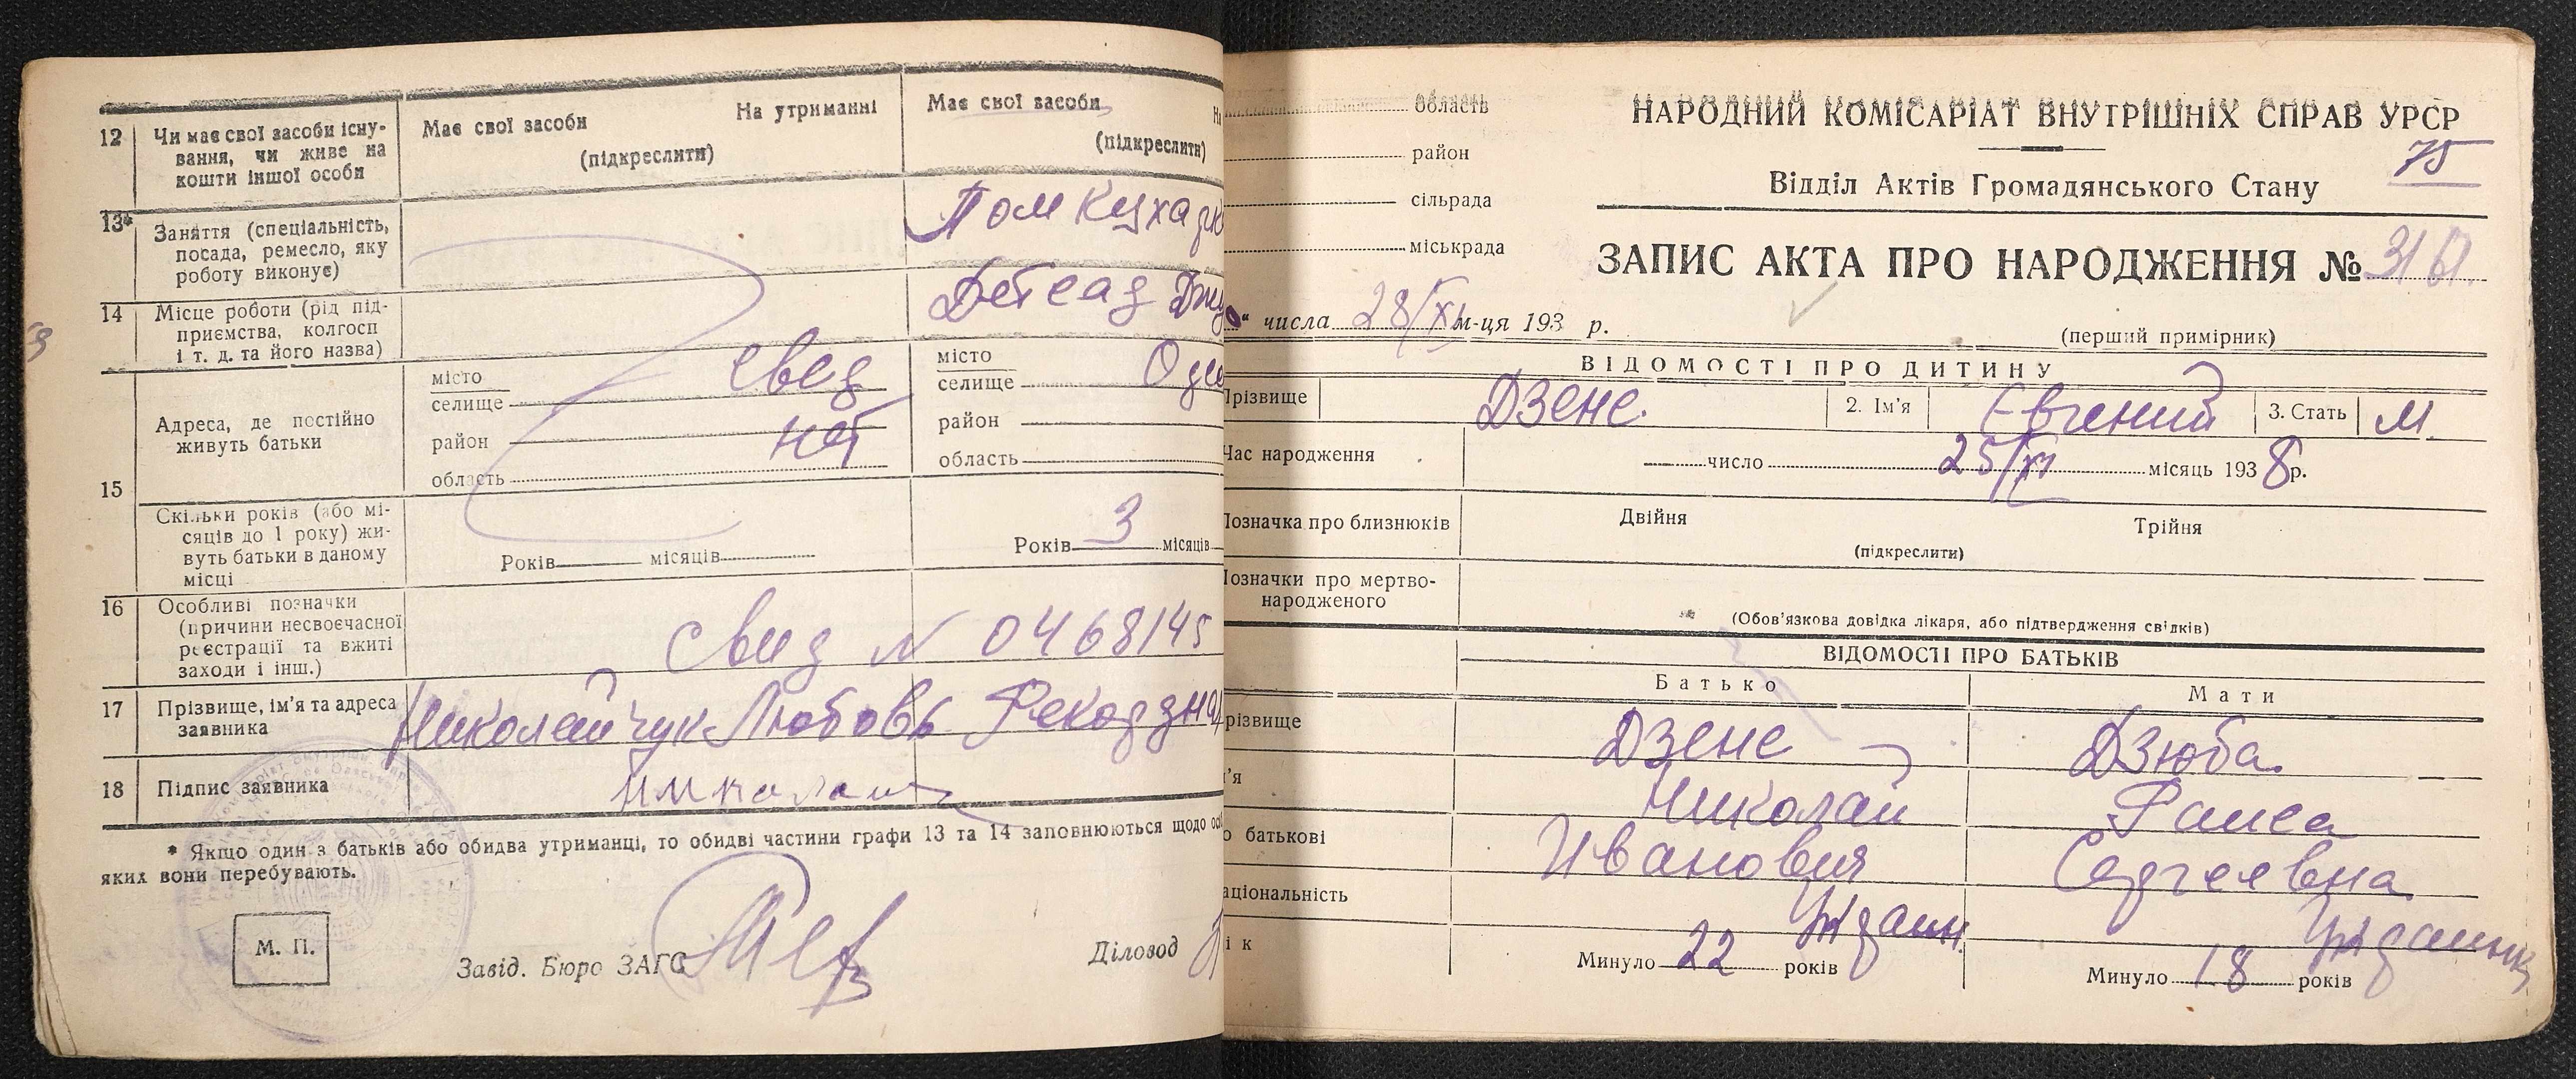 12 Чи має свої засоби існу-
вання, чи живе на
кошти іншої особи
Має свої засоби На утриманні
(підкреслити)
Має свої засоби
(підкреслити)
13* Заняття (спеціальність,
посада, ремесло, яку
роботу виконує)
Пом
14 Місце роботи (рід під-
приємства, колгосп
і т. д. та його назва)
Детсад
15 Адреса, де постійно
живуть батьки
місто
селище
район
область
свед
нет
місто
селище
район
область
Скільки років (або мі-
сяців до 1 року) жи-
вуть батьки в даному
місці
Років місяців
Років 3 місяців
16 Особливі позначки
(причини несвоєчасної
реєстрації та вжиті
заходи і інш.)
Свид N 0468145
17 Прізвище, ім'я та адреса
заявника
Николайчук Любовь
18 Підпис заявника
* Якщо один з батьків або обидва утриманці, то обидві частини графи 13 та 14 заповнюються щодо
яких вони перебувають.
М. П.
Завід. Бюро ЗАГС
Діловод
область
район
сільрада
міськрада
НАРОДНИЙ КОМІСАРІАТ ВНУТРІШНІХ СПРАВ УРСР
75
Відділ Актів Громадянського Стану
ЗАПИС АКТА ПРО НАРОДЖЕННЯ №
“ числа 28/XI м-ця 193 р.
(перший примірник)
ВІДОМОСТІ ПРО ДИТИНУ
Прізвище Дзене 2. Ім'я Евгений 3. Стать М.
Час народження число 25/XI місяць 1938 р.
Позначка про близнюків Двійня Трійня
(підкреслити)
Позначки про мертво-
народженого
(Обов'язкова довідка лікаря, або підтвердження свідків)
ВІДОМОСТІ ПРО БАТЬКІВ
Батько Мати
різвище Дзене Дзюба
м'я Николай Раиса
о батькові Иванович Сергеевна
аціональність
і к Минуло 22 років Минуло 18 років